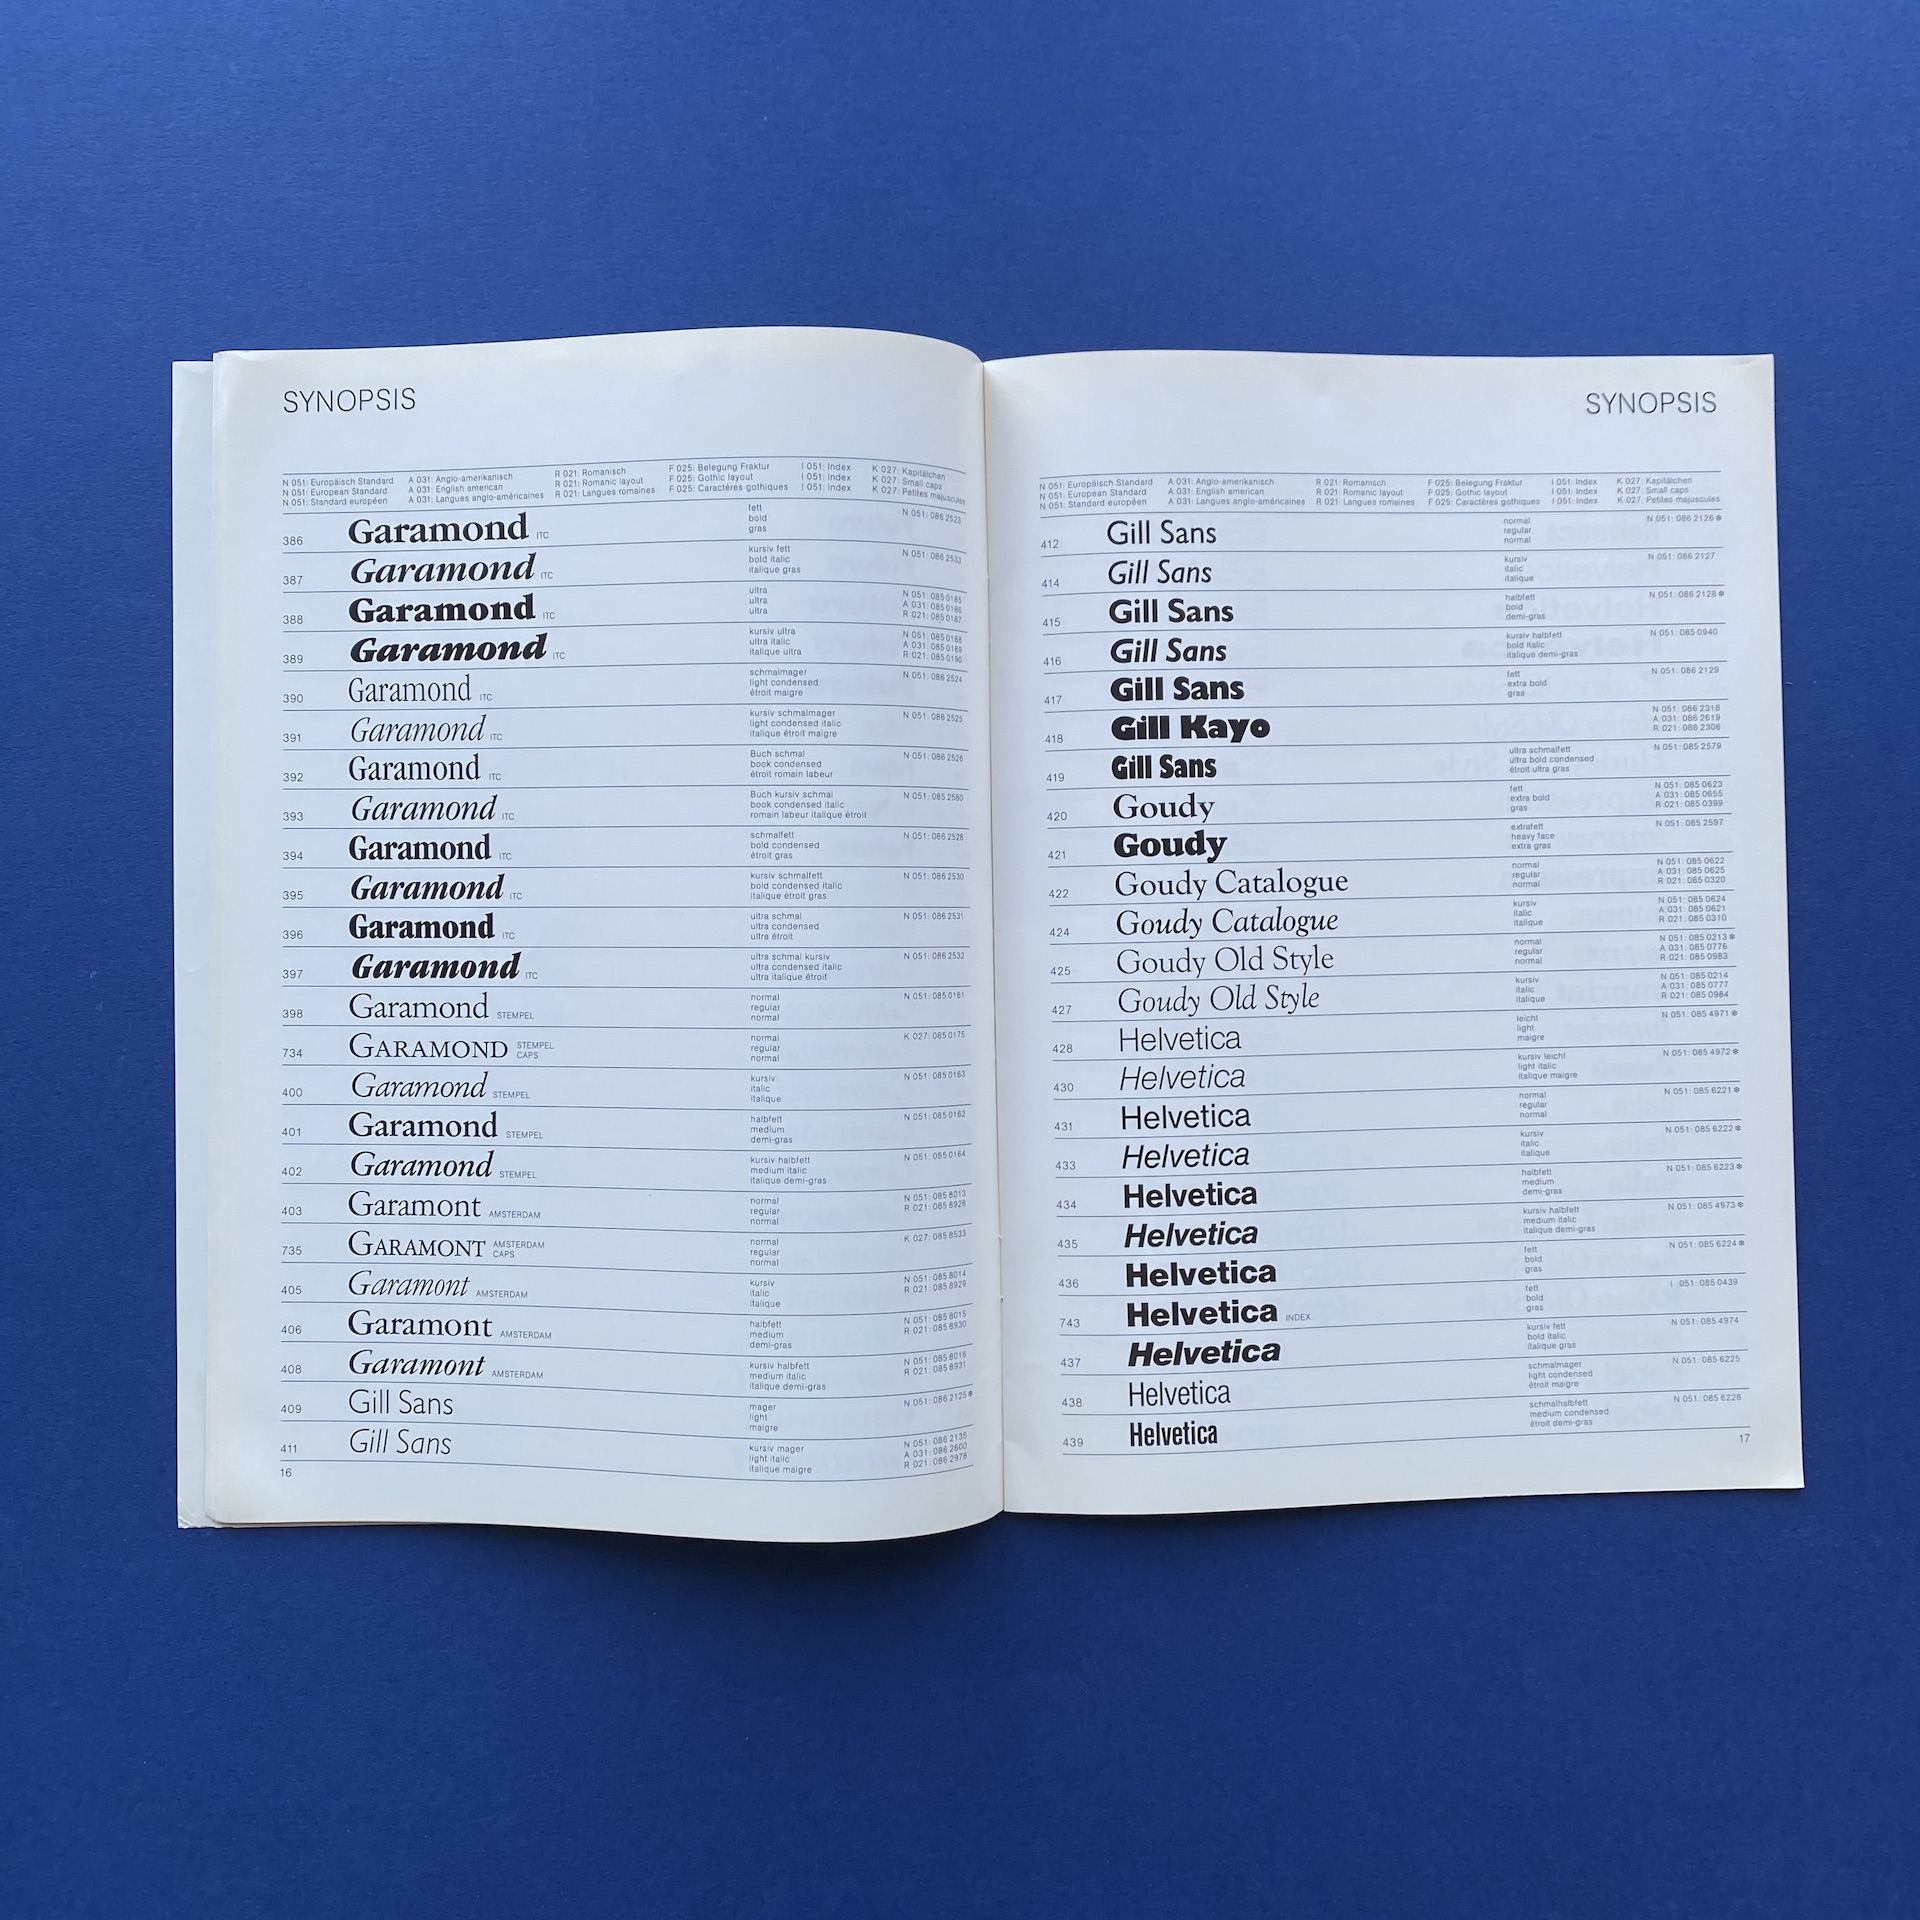 SYNOPSIS
N 051: Europäisch Standard A 031: Anglo-amerikanisch R 021: Romanisch F 025: Belegung Fraktur I 051: Index K 027: Kapitälchen
N 051: European Standard A 031: English american R 021: Romanic layout F 025: Gothic layout I 051: Index K 027: Small caps
N 051: Standard européen A 031: Langues anglo-américaines R 021: Langues romaines F 025: Caractères gothiques I 051: Index K 027: Petites majuscules
386 Garamond ITC fett N 051: 086 2523
bold
gras
387 Garamond ITC kursiv fett N 051: 086 2533
bold italic
italique gras
388 Garamond ITC ultra N 051: 085 0185
ultra A 031: 085 0186
ultra R 021: 085 0187
389 Garamond ITC kursiv ultra N 051: 085 0188
ultra italic A 031: 085 0189
italique ultra R 021: 085 0190
390 Garamond ITC schmalmager N 051: 086 2524
light condensed
étroit maigre
391 Garamond ITC kursiv schmalmager N 051: 086 2525
light condensed italic
italique étroit maigre
392 Garamond ITC Buch schmal N 051: 086 2526
book condensed
étroit romain labeur
393 Garamond ITC Buch kursiv schmal N 051: 085 2580
book condensed italic
romain labeur italique étroit
394 Garamond ITC schmalfett N 051: 086 2528
bold condensed
étroit gras
395 Garamond ITC kursiv schmalfett N 051: 086 2530
bold condensed italic
italique étroit gras
396 Garamond ITC ultra schmal N 051: 086 2531
ultra condensed
ultra étroit
397 Garamond ITC ultra schmal kursiv N 051: 086 2532
ultra condensed italic
ultra italique étroit
398 Garamond STEMPEL normal N 051: 085 0161
regular
normal
734 GARAMOND STEMPEL CAPS normal K 027: 085 0175
regular
normal
400 Garamond STEMPEL kursiv N 051: 085 0163
italic
italique
401 Garamond STEMPEL halbfett N 051: 085 0162
medium
demi-gras
402 Garamond STEMPEL kursiv halbfett N 051: 085 0164
medium italic
italique demi-gras
403 Garamont AMSTERDAM normal N 051: 085 8013
regular R 021: 085 8928
normal
735 GARAMONT AMSTERDAM CAPS normal K 027: 085 8533
regular
normal
405 Garamont AMSTERDAM kursiv N 051: 085 8014
italic R 021: 085 8929
italique
406 Garamont AMSTERDAM halbfett N 051: 085 8015
medium R 021: 085 8930
demi-gras
408 Garamont AMSTERDAM kursiv halbfett N 051: 085 8016
medium italic R 021: 085 8931
italique demi-gras
409 Gill Sans mager N 051: 086 2125*
light
maigre
411 Gill Sans kursiv mager N 051: 086 2135
light italic A 031: 086 2600
italique maigre R 021: 086 2978
16
SYNOPSIS
N 051: Europäisch Standard A 031: Anglo-amerikanisch R 021: Romanisch F 025: Belegung Fraktur I 051: Index K 027: Kapitälchen
N 051: European Standard A 031: English american R 021: Romanic layout F 025: Gothic layout I 051: Index K 027: Small caps
N 051: Standard européen A 031: Langues anglo-américaines R 021: Langues romaines F 025: Caractères gothiques I 051: Index K 027: Petites majuscules
412 Gill Sans normal N 051: 086 2126*
regular
normal
414 Gill Sans kursiv N 051: 086 2127
italic
italique
415 Gill Sans halbfett N 051: 086 2128*
bold
demi-gras
416 Gill Sans kursiv halbfett N 051: 085 0940
bold italic
italique demi-gras
417 Gill Sans fett N 051: 086 2129
extra bold
gras
418 Gill Kayo N 051: 086 2318
A 031: 086 2619
R 021: 086 2306
419 Gill Sans ultra schmalfett N 051: 085 2579
ultra bold condensed
étroit ultra gras
420 Goudy fett N 051: 085 0623
extra bold A 031: 085 0655
gras R 021: 085 0399
421 Goudy extrafett N 051: 085 2597
heavy face
extra gras
422 Goudy Catalogue normal N 051: 085 0622
regular A 031: 085 0625
normal R 021: 085 0320
424 Goudy Catalogue kursiv N 051: 085 0624
italic A 031: 085 0621
italique R 021: 085 0310
425 Goudy Old Style normal N 051: 085 0213*
regular A 031: 085 0776
normal R 021: 085 0983
427 Goudy Old Style kursiv N 051: 085 0214
italic A 031: 085 0777
italique R 021: 085 0984
428 Helvetica leicht N 051: 085 4971*
light
maigre
430 Helvetica kursiv leicht N 051: 085 4972*
light italic
italique maigre
431 Helvetica normal N 051: 085 6221*
regular
normal
433 Helvetica kursiv N 051: 085 6222*
italic
italique
434 Helvetica halbfett N 051: 085 6223*
medium
demi-gras
435 Helvetica kursiv halbfett N 051: 085 4973*
medium italic
italique demi-gras
436 Helvetica fett N 051: 085 6224*
bold
gras
743 Helvetica INDEX fett I 051: 085 0439
bold
gras
437 Helvetica kursiv fett N 051: 085 4974
bold italic
italique gras
438 Helvetica schmalmager N 051: 085 6225
light condensed
étroit maigre
439 Helvetica schmalhalbfett N 051: 085 6228
medium condensed
étroit demi-gras
17